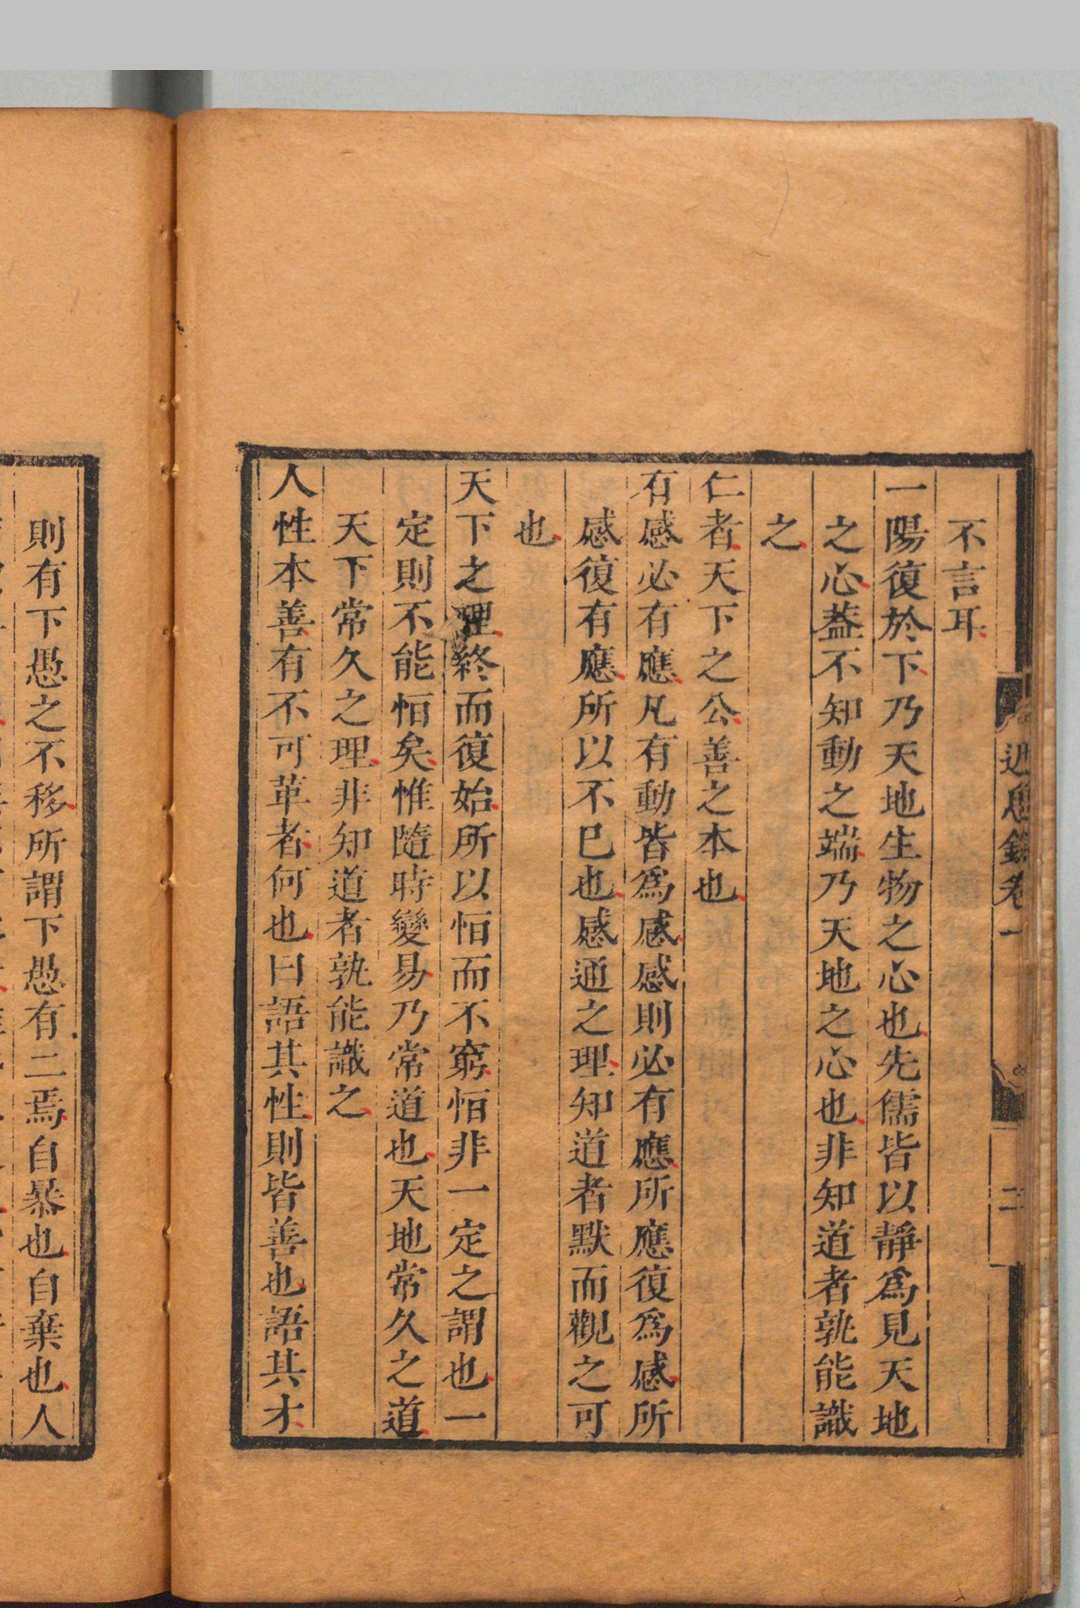 近思錄卷一
二
不言耳
一陽復於下乃天地生物之心也先儒皆以靜爲見天地
之心葢不知動之端乃天地之心也非知道者孰能識
之
仁者天下之公善之本也
有感必有應凡有動皆爲感感則必有應所應復爲感所
感復有應所以不已也感通之理知道者默而觀之可
也
天下之理終而復始所以恒而不窮恒非一定之謂也一
定則不能恒矣惟隨時變易乃常道也天地常久之道
天下常久之理非知道者孰能識之
人性本善有不可革者何也曰語其性則皆善也語其才
則有下愚之不移所謂下愚有二焉自暴也自棄也人